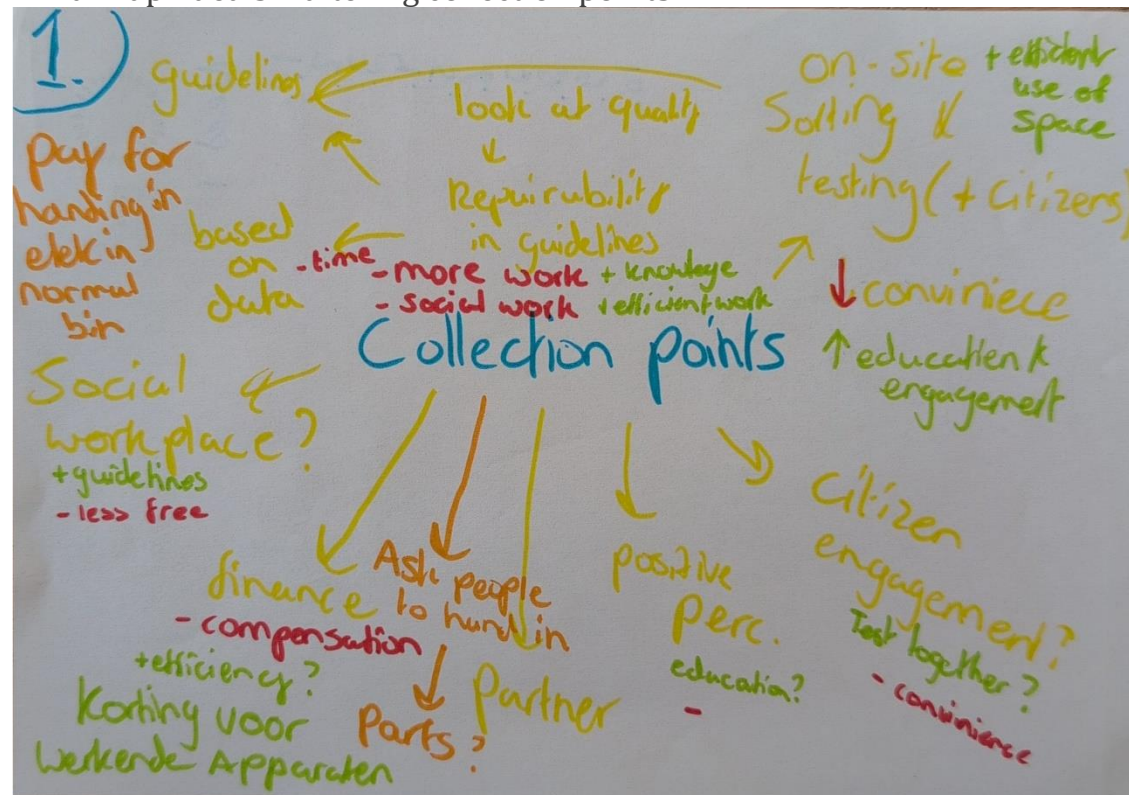 1.
guidelines
look at quality
Repairability
in guidelines
on-site
Sorting &
testing (+ citizens)
+ efficient
use of
space
pay for
handing in
elek in
normal
bin
based
on
data
- time
- more work + knowlege
- social work + efficient work
Collection points
↓ conviniece
↑ education &
engagement
Social
workplace?
+ guidelines
- less free
finance
- compensation
+ efficiency?
Korting voor
Werkende Apparaten
Ask people
to hand in
Parts?
Partner
positive
perc.
education?
-
Citizen
engagement?
Test together?
- convinience